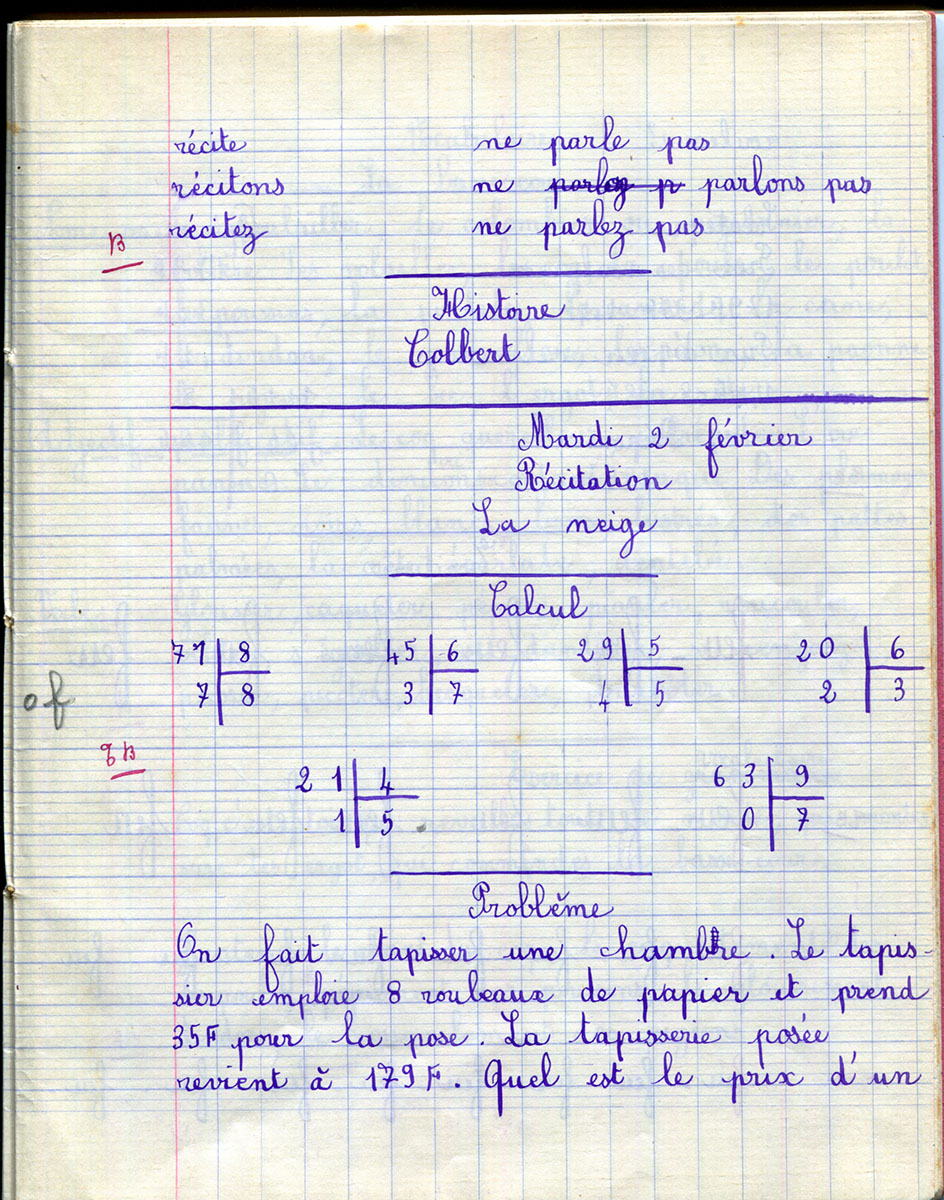 récite ne parle pas
récitons ne parlez p parlons pas
récitez ne parlez pas
B
Histoire
Colbert
Mardi 2 février
Récitation
La neige
Calcul
71 8 45 6 29 5 20 6
7 8 3 7 4 5 2 3
of
TB
21 4 63 9
1 5 0 7
Problème
On fait tapisser une chambre. Le tapis-
sier emploie 8 rouleaux de papier et prend
35F pour la pose. La tapisserie posée
revient à 179F. Quel est le prix d'un